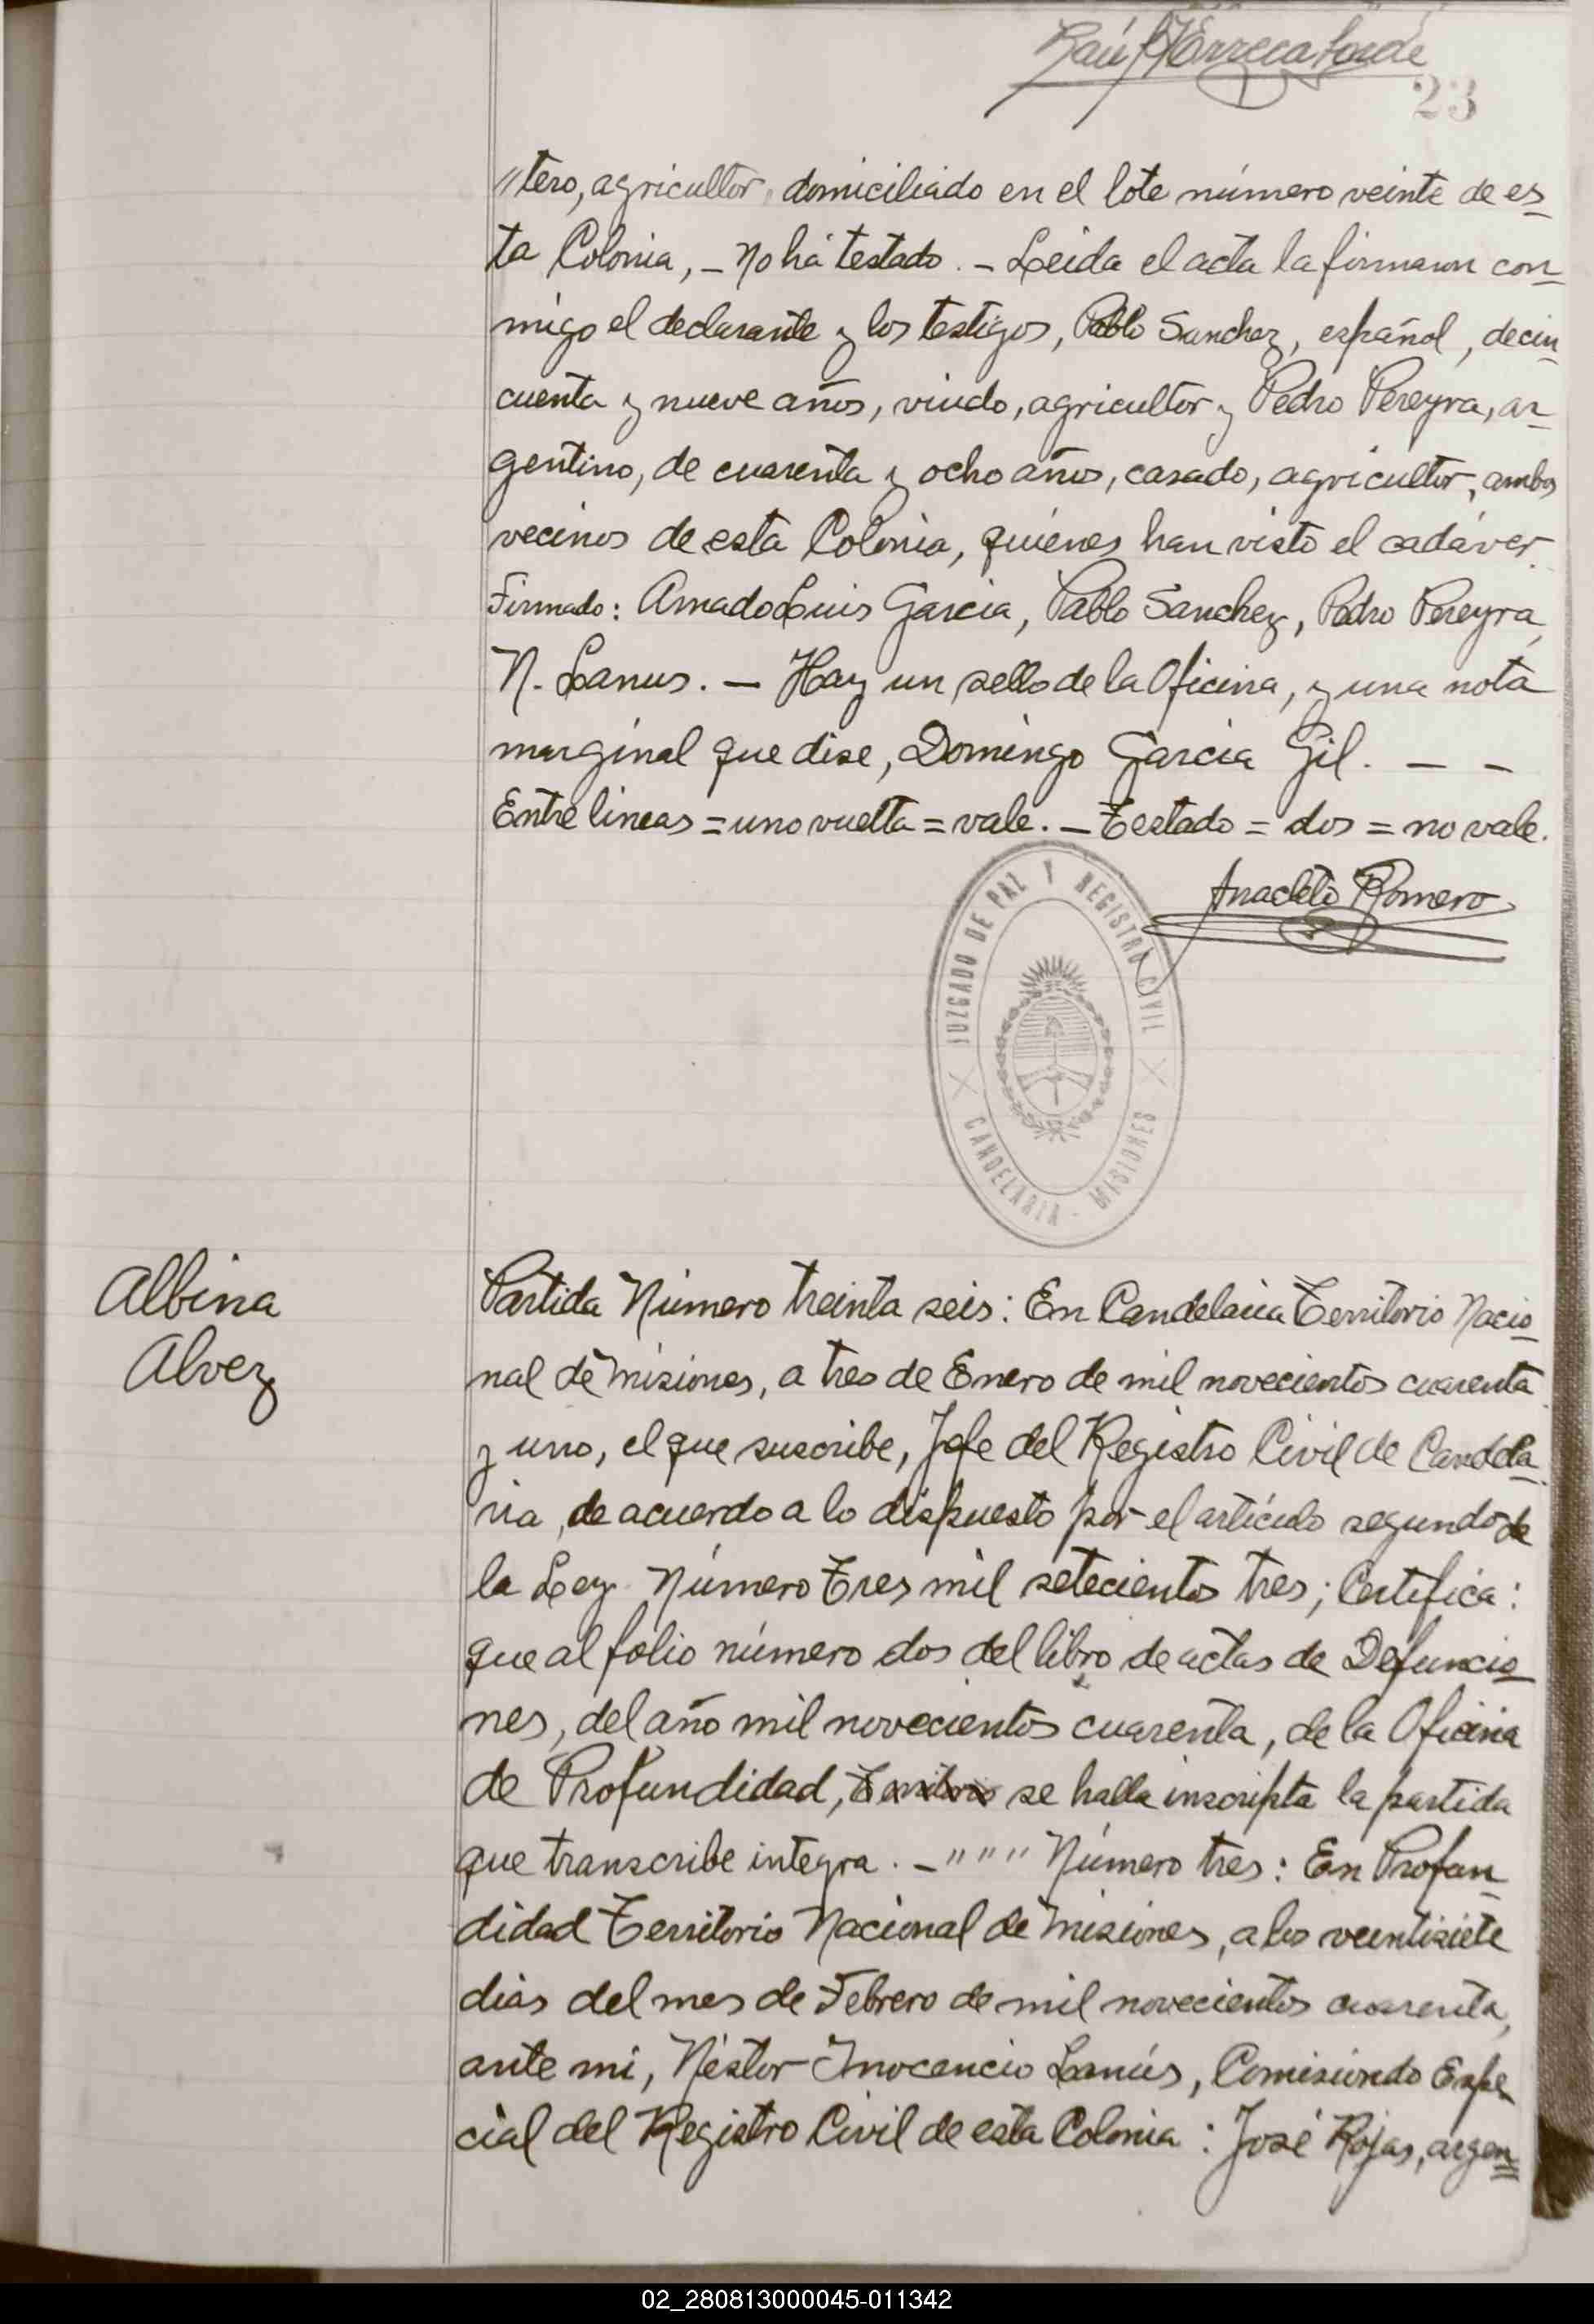 23
"tero, agricultor, domiciliado en el lote número veinte de es-
ta Colonia, - No há testado. - Leida el acta la firmaron con-
migo el declarante y los testigos, Pablo Sanchez, español, de cin-
cuenta y nueve años, viudo, agricultor y Pedro Pereyra, ar-
gentino, de cuarenta y ocho años, casado, agricultor, ambos
vecinos de esta Colonia, quienes han visto el cadáver.
Firmado: Amado Luis Garcia, Pablo Sanchez, Pedro Pereyra,
N. Lanus. - Hay un sello de la Oficina, y una nota
marginal que dise, Domingo Garcia Gil. - -
Entre lineas = uno vuelta = vale. - Testado = dos = no vale.
Anacleto Romero
JUZGADO DE PAZ Y REGISTRO CIVIL
CANDELARIA - MISIONES
Albina
Alvez
Partida Número treinta seis: En Candelaria Territorio Nacio-
nal de Misiones, a tres de Enero de mil novecientos cuarenta
y uno, el que suscribe, Jefe del Registro Civil de Candela-
ria, de acuerdo a lo dispuesto por el artículo segundo de
la Ley Número Tres mil setecientos tres; Certifica:
que al folio número dos del libro de actas de Defuncio-
nes, del año mil novecientos cuarenta, de la Oficina
de Profundidad, Territorio se halla inscripta la partida
que transcribe integra. - """ Número tres: En Profun-
didad Territorio Nacional de Misiones, a los veintisiete
dias del mes de Febrero de mil novecientos cuarenta,
ante mi, Néstor Inocencio Lanús, Comisiondo Espe-
cial del Registro Civil de esta Colonia: José Rojas, argen=
02_280813000045-011342